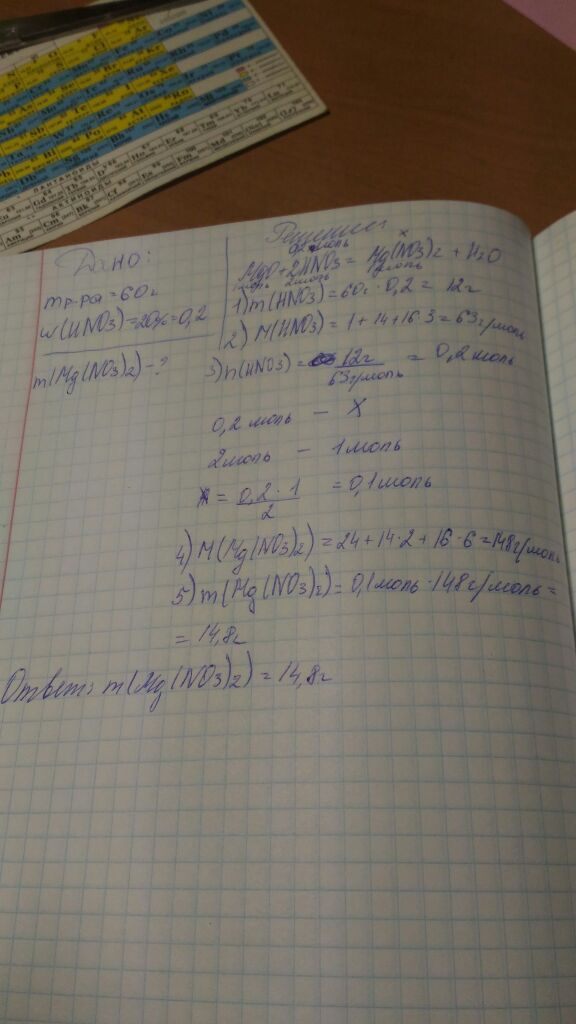 ЛАНТАНОИДЫ
АКТИНОИДЫ
Дано:
mр-ра = 60г
w(HNO3)=20%=0,2
m(Mg(NO3)2) - ?
Решение:
0,2моль x
MgO + 2HNO3 = Mg(NO3)2 + H2O
1моль 2моль 1моль
1) m(HNO3) = 60г · 0,2 = 12г
2) M(HNO3) = 1 + 14 + 16·3 = 63г/моль
3) n(HNO3) = 12г / 63г/моль = 0,2моль
0,2 моль — X
2моль — 1моль
X = 0,2 · 1 / 2 = 0,1моль
4) M(Mg(NO3)2) = 24 + 14·2 + 16·6 = 148г/моль
5) m(Mg(NO3)2) = 0,1моль · 148г/моль =
= 14,8г
Ответ: m(Mg(NO3)2) = 14,8г